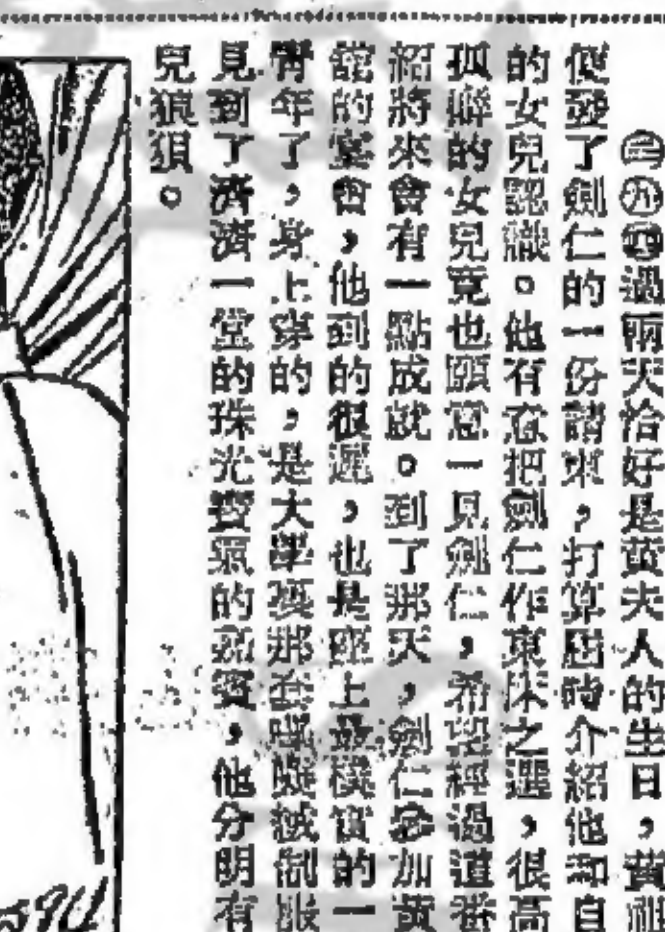 ㊂㊄㊃過兩天恰好是黃夫人的生日，黃祖
便發了劍仁的一份請柬，打算屆時介紹他和自
的女兒認識。他有意把劍仁作東床之選，很高
孤僻的女兒竟也願意一見劍仁，希望經過這番
紹將來會有一點成就。到了那天，劍仁參加黃
館的堂會，他到的很遲，也是座上最樸實的一
青年了，身上穿的，是大學裏那套嗶嘰絨制服
見到了濟濟一堂的珠光寶氣的嘉賓，他分明有
兒狼狽。